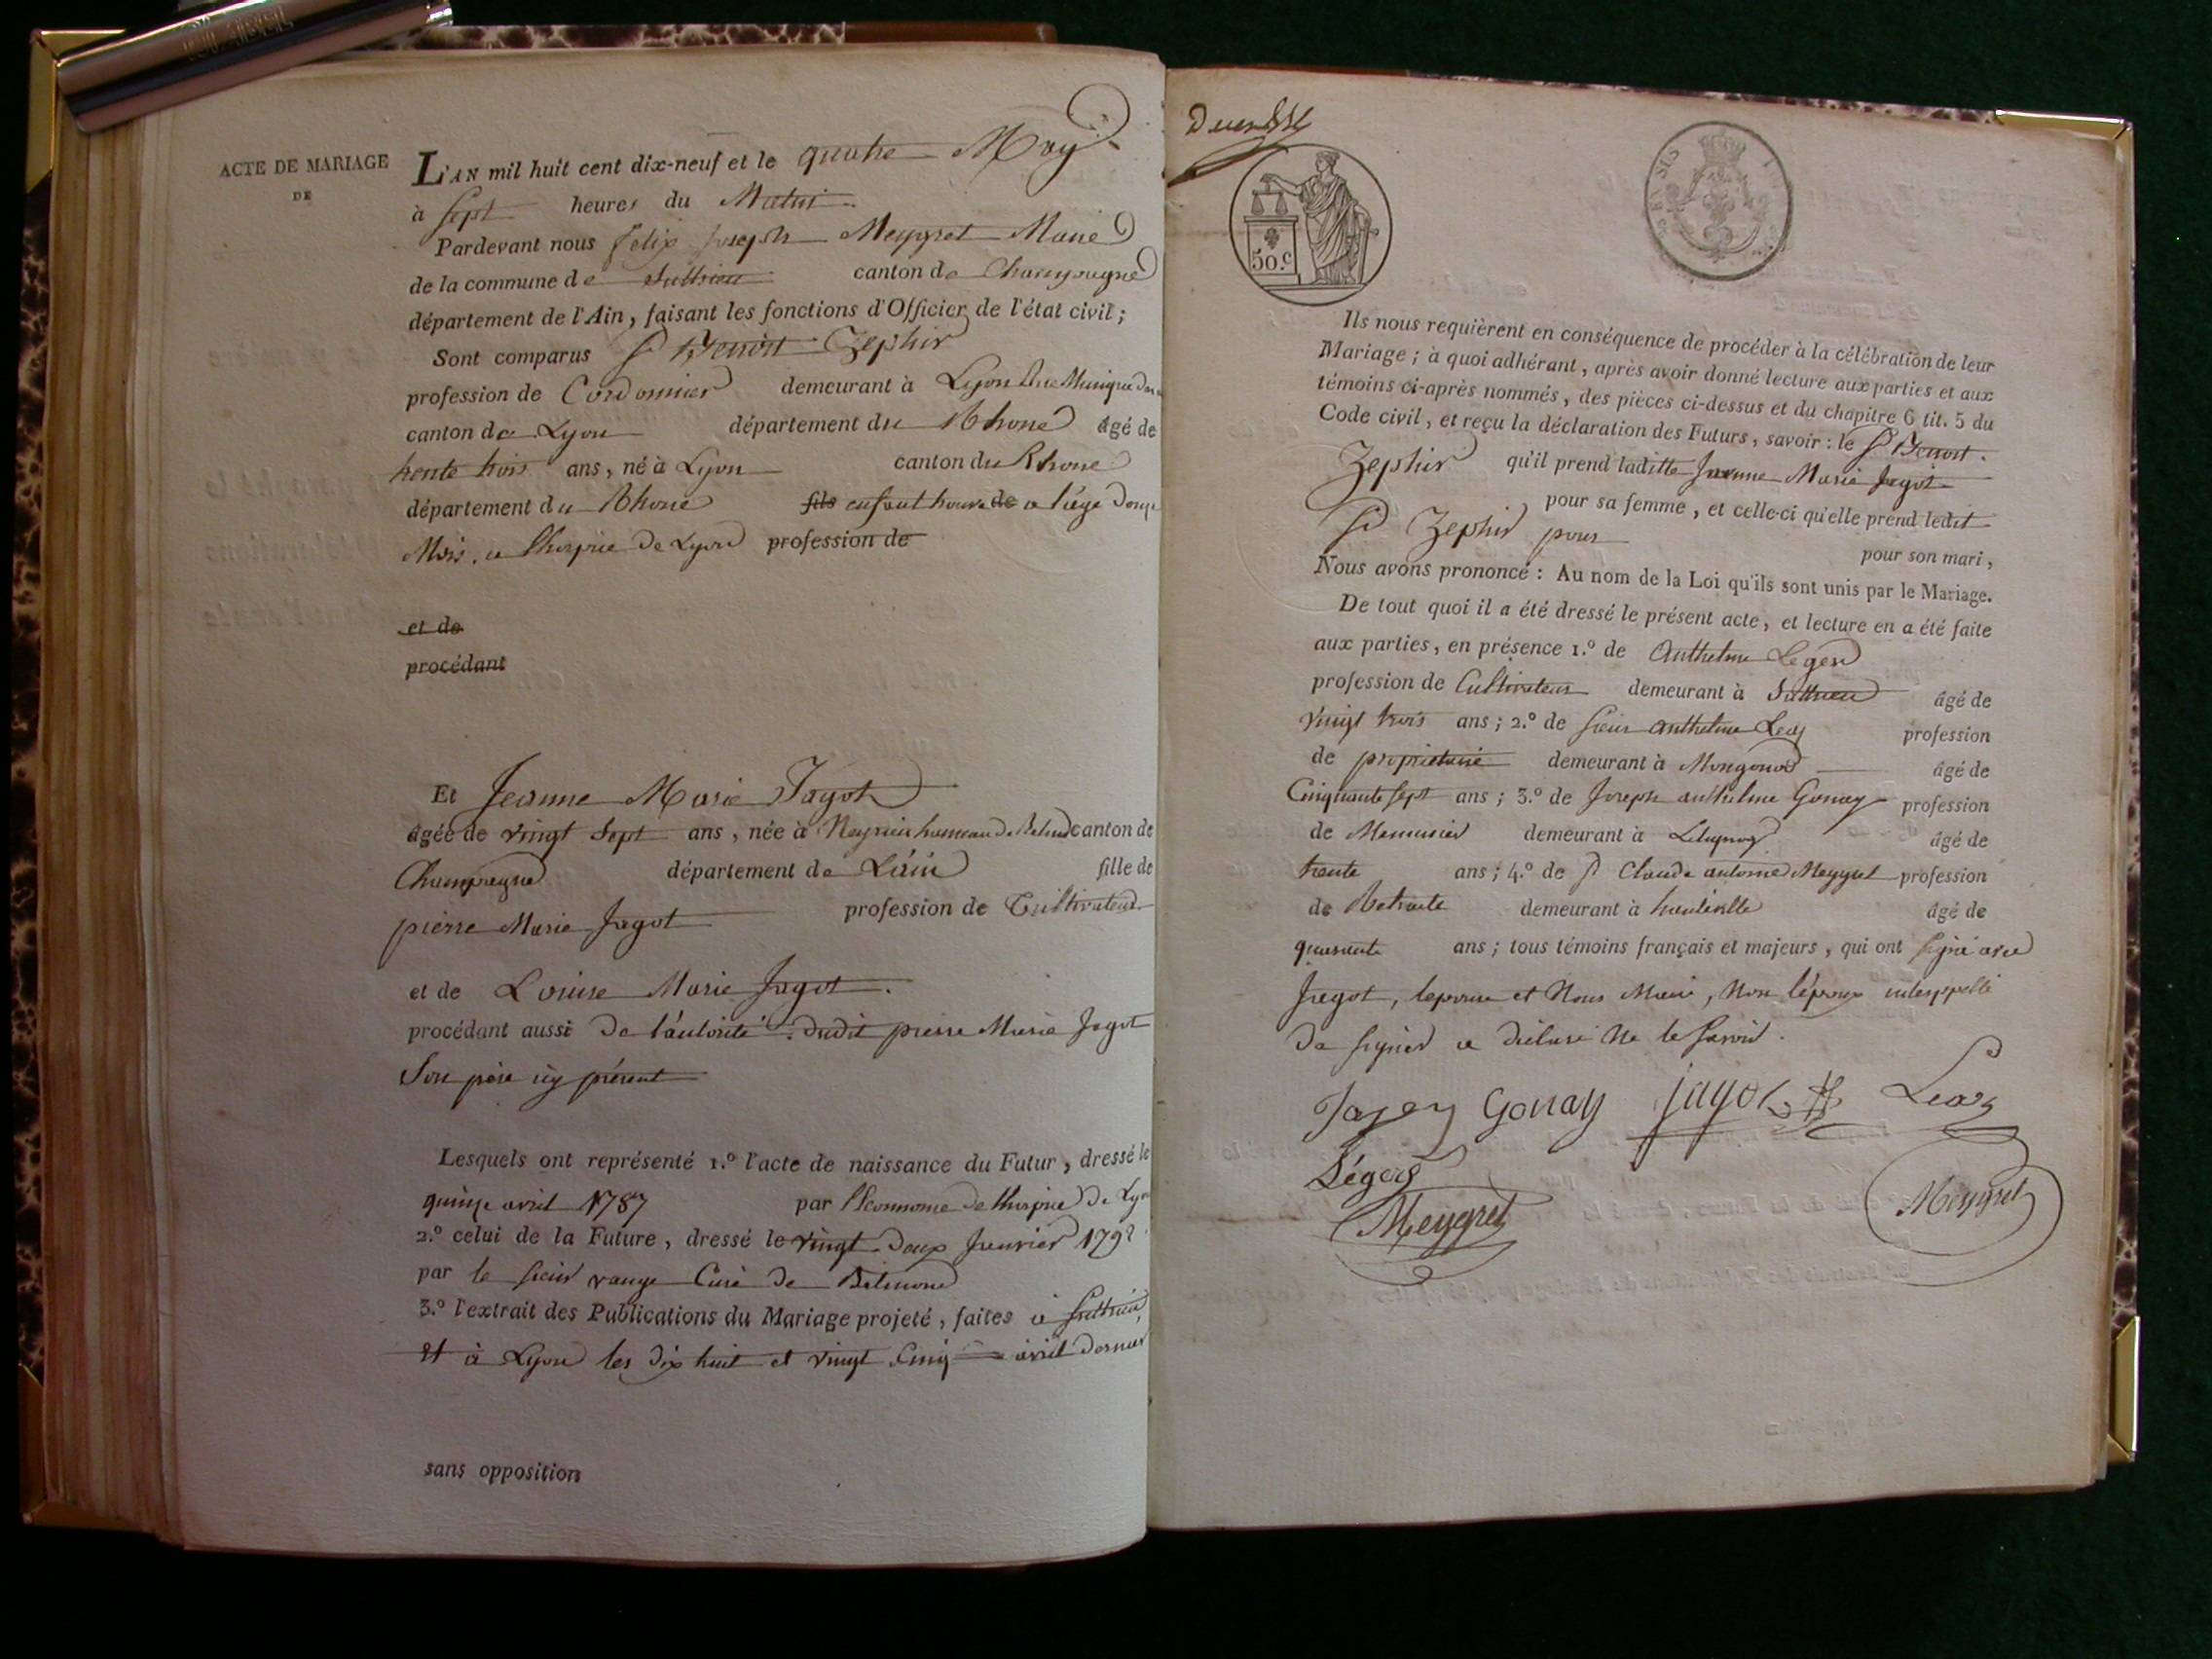 ACTE DE MARIAGE
DE
L'AN mil huit cent dix-neuf et le quatre May
à sept heures du Matin
Pardevant nous felix joseph Meygret Maire
de la commune de Suthrieu canton de Champagne
département de l'Ain, faisant les fonctions d'Officier de l'état civil;
Sont comparus Sr Benoit Zephir
profession de Cordonnier demeurant à Lyon
canton de Lyon département du Rhone âgé de
trente trois ans, né à Lyon canton du Rhone
département du Rhone fils enfant trouvé de a l'age
Mois, a l'hospice de Lyon profession de
et de
procédant
Et Jeanne Marie Jagot
agée de vingt Sept ans, née à hameau de canton de
Champagne département de L'ain fille de
pierre Marie Jagot profession de Cultivateur
et de Louise Marie Jagot.
procédant aussi de l'autorité dudit pierre Marie Jagot
Son père icy présent
Lesquels ont représenté 1.º l'acte de naissance du Futur, dressé le
quinze avril 1787 par l'Econnome de l'hospice de Lyon
2.º celui de la Future, dressé le vingt deux Janvier 179
par le sieur Curé de
3.º l'extrait des Publications du Mariage projeté, faites à Suthrieu,
et à Lyon les dix huit et vingt cinq avril dernier
sans opposition
50.c
Ils nous requièrent en conséquence de procéder à la célébration de leur
Mariage; à quoi adhérant, après avoir donné lecture aux parties et aux
témoins ci-après nommés, des pièces ci-dessus et du chapitre 6 tit. 5 du
Code civil, et reçu la déclaration des Futurs, savoir: le Sr Benoit
Zephir qu'il prend laditte Jeanne Marie Jagot
pour sa femme, et celle-ci qu'elle prend ledit
Sr Zephir pour
pour son mari,
Nous avons prononcé: Au nom de la Loi qu'ils sont unis par le Mariage.
De tout quoi il a été dressé le présent acte, et lecture en a été faite
aux parties, en présence 1.º de Anthelme Leger
profession de Cultivateur demeurant à Suthrieu âgé de
vingt trois ans; 2.º de sieur anthelme Leas profession
de propriétaire demeurant à Mongonod âgé de
Cinquante sept ans; 3.º de Joseph anthelme Gonay profession
de Menuisier demeurant à âgé de
trente ans; 4.º de Sr Claude antoine Meygret profession
de Retraite demeurant à hauteville âgé de
quarante ans; tous témoins français et majeurs, qui ont signé avec
Jagot, lepouse et Nous Maire, Non l'époux
de signer a déclaré Ne le savoir.
Gonay jagot Leas
Léger
Meygret Meygret